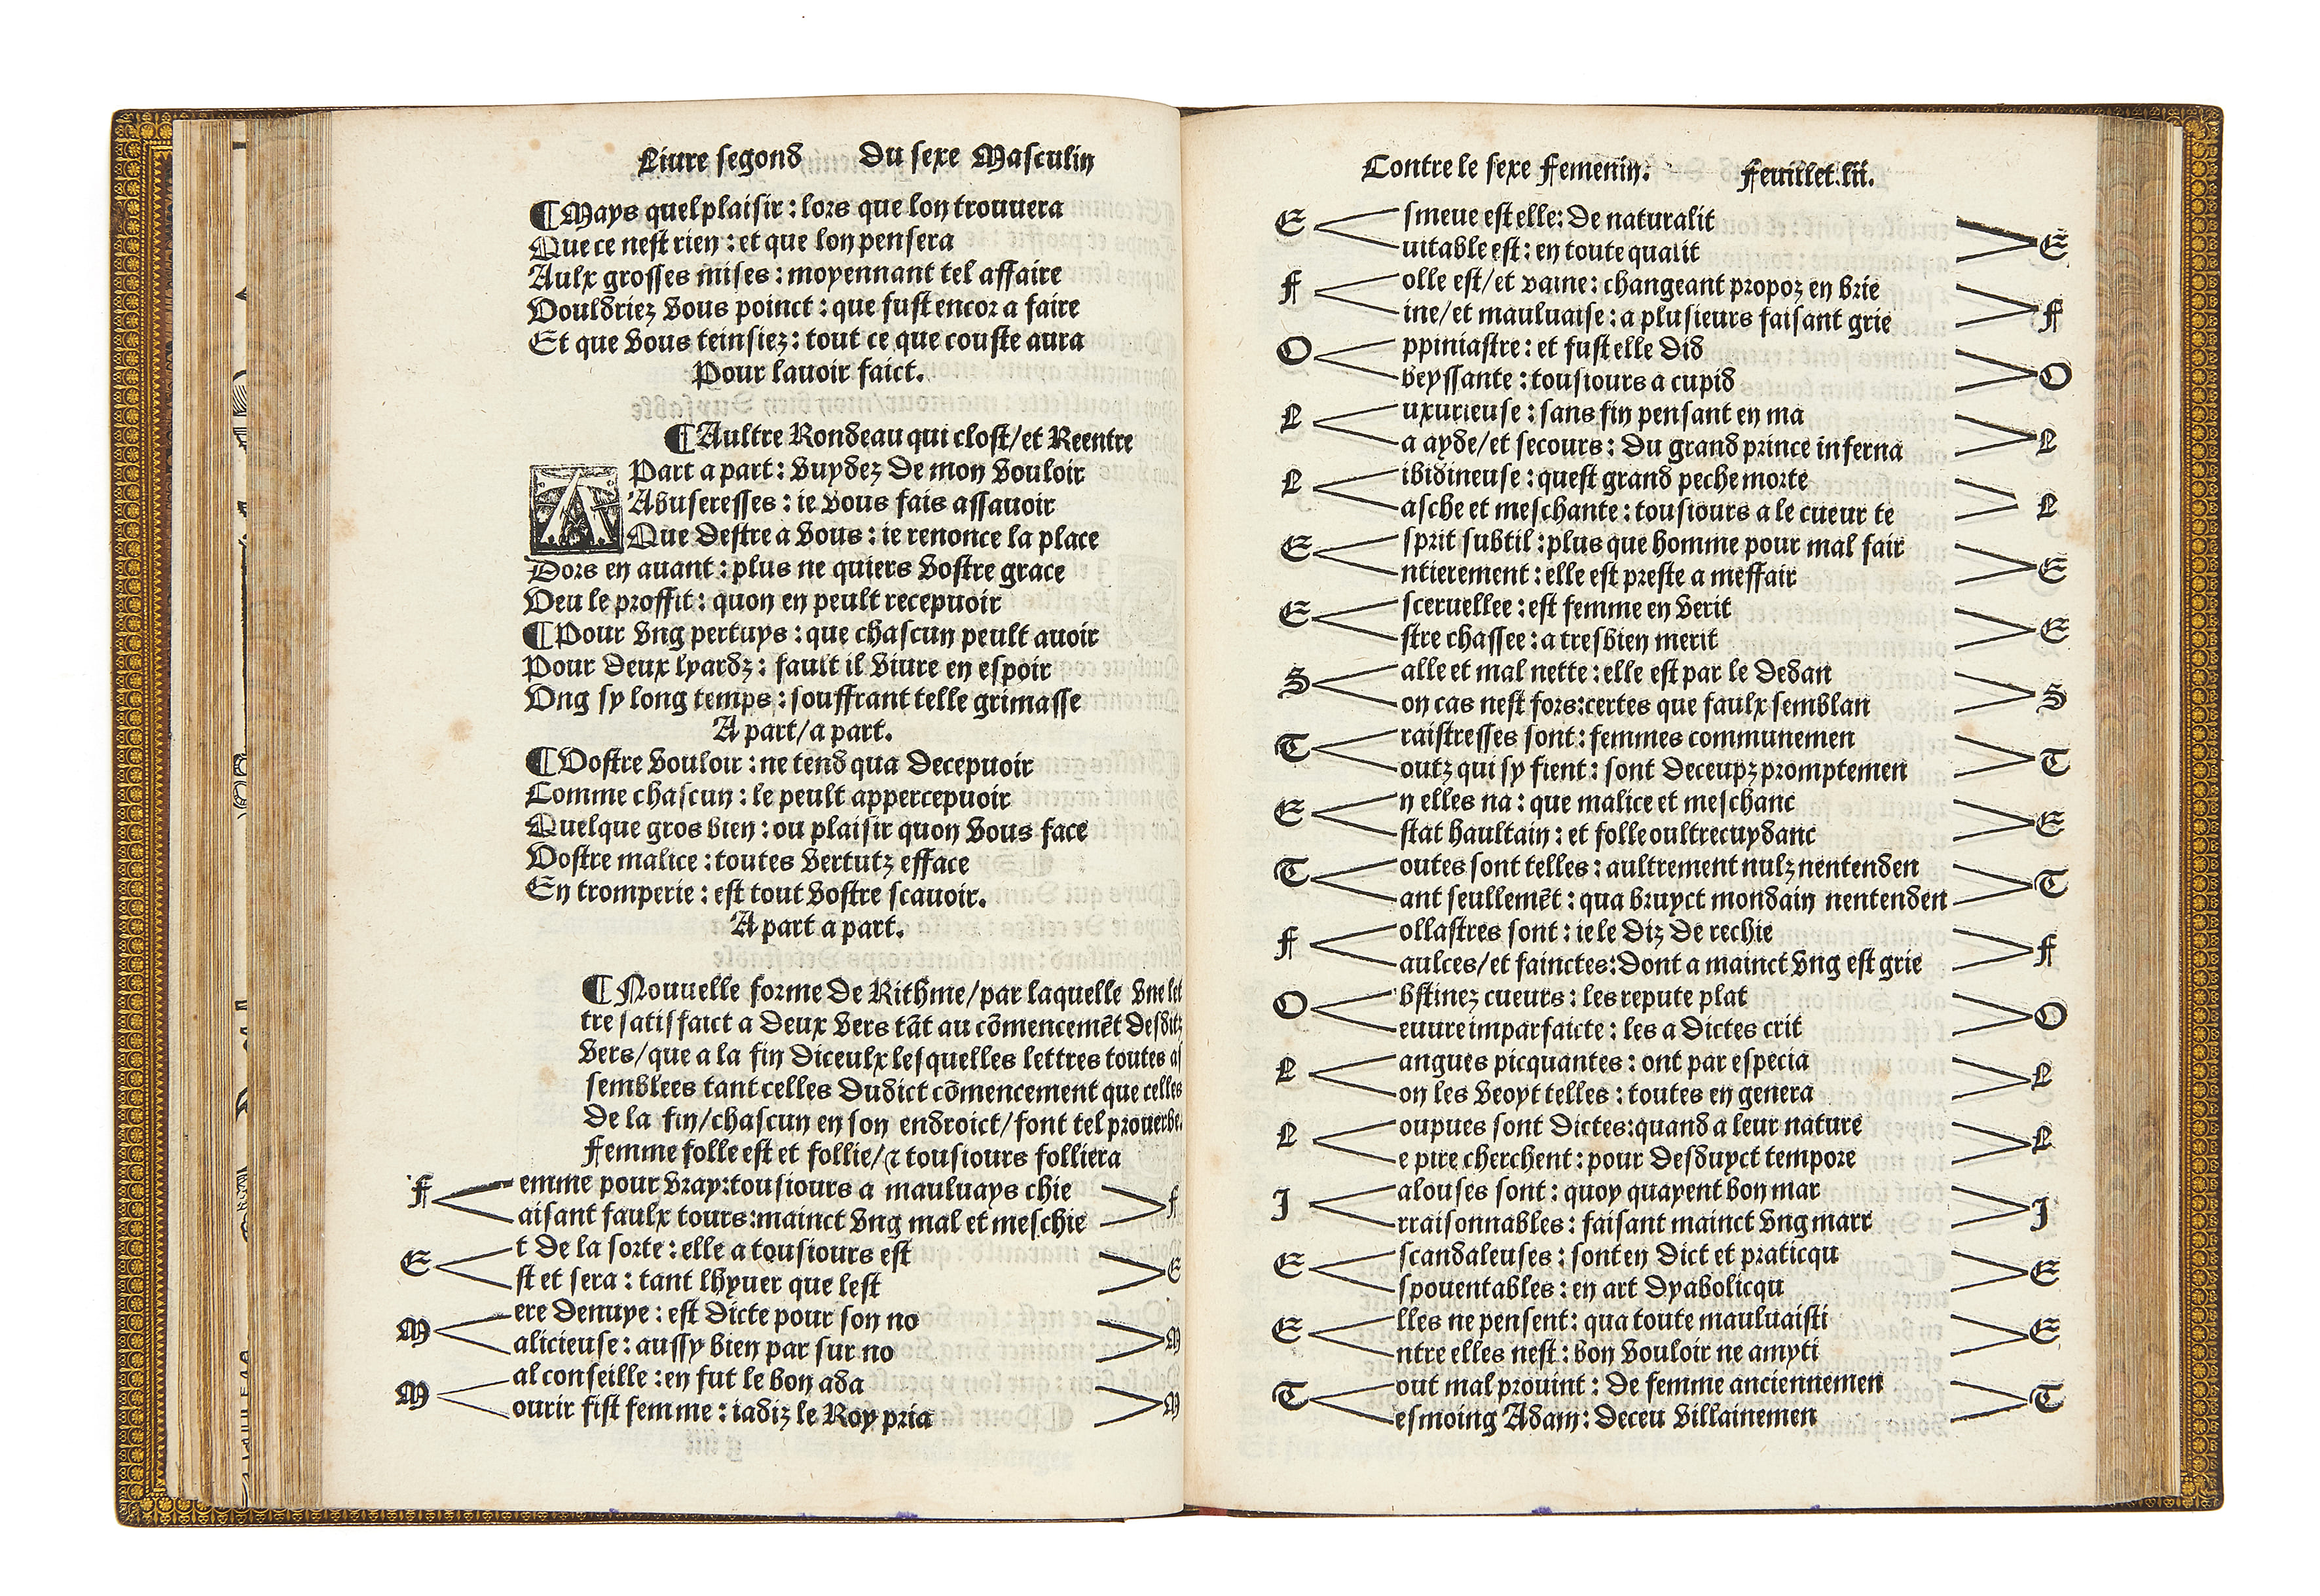 Liure segond Du sexe Masculin
¶ Mays quel plaisir : lors que lon trouuera
Que ce nest rien : et que lon pensera
Aulx grosses mises : moyennant tel affaire
Vouldriez vous poinct : que fust encor a faire
Et que vous teinsiez : tout ce que couste aura
Pour lauoir faict.
¶ Aultre Rondeau qui clost/et Reentre
A Part a part : vuydez de mon vouloir
Abuseresses : ie vous fais assauoir
Que destre a vous : ie renonce la place
Dors en auant : plus ne quiers vostre grace
Veu le proffit : quon en peult recepuoir
¶ Pour vng pertuys : que chascun peult auoir
Pour deux lyardz : fault il viure en espoir
Vng sy long temps : souffrant telle grimasse
A part/a part.
¶ Vostre vouloir : ne tend qua decepuoir
Comme chascun : le peult appercepuoir
Quelque gros bien : ou plaisir quon vous face
Vostre malice : toutes vertutz efface
En tromperie : est tout vostre scauoir.
A part a part.
¶ Nouuelle forme de Rithme/par laquelle vne let
tre satisfaict a deux vers tāt au cōmencemēt desditz
vers/que a la fin diceulx lesquelles lettres toutes as
semblees tant celles dudict cōmencement que celles
de la fin/chascun en son endroict/font tel prouerbe.
Femme folle est et follie/⁊ tousiours folliera
F emme pour vray:tousiours a mauluays chie F
aisant faulx tours:mainct vng mal et meschie
E t de la sorte : elle a tousiours est E
st et sera : tant lhyuer que lest
M ere denuye : est dicte pour son no M
alicieuse : aussy bien par sur no
M al conseille : en fut le bon ada M
ourir fist femme : iadiz le Roy pria
Contre le sexe Femenin. Feuillet.lii.
E smeue est elle : de naturalit E
uitable est : en toute qualit
F olle est/et vaine : changeant propoz en brie F
ine/et mauluaise : a plusieurs faisant grie
O ppiniastre : et fust elle did O
beyssante : tousiours a cupid
L uxurieuse : sans fin pensant en ma L
a ayde/et secours : du grand prince inferna
L ibidineuse : quest grand peche morte L
asche et meschante : tousiours a le cueur te
E sprit subtil : plus que homme pour mal fair E
ntierement : elle est preste a meffair
E sceruellee : est femme en verit E
stre chassee : a tresbien merit
S alle et mal nette : elle est par le dedan S
on cas nest fors:certes que faulx semblan
T raistresses sont : femmes communemen T
outz qui sy fient : sont deceupz promptemen
E n elles na : que malice et meschanc E
stat haultain : et folle oultrecuydanc
T outes sont telles : aultrement nulz nentenden T
ant seullemēt : qua bruyct mondain nentenden
F ollastres sont : ie le diz de rechie F
aulces/et fainctes:dont a mainct vng est grie
O bstinez cueurs : les repute plat O
euure imparfaicte : les a dictes crit
L angues picquantes : ont par especia L
on les veoyt telles : toutes en genera
L oupues sont dictes:quand a leur nature L
e pire cherchent : pour desduyct tempore
I alouses sont : quoy quayent bon mar I
rraisonnables : faisant mainct vng marr
E scandaleuses : sont en dict et praticqu E
spouentables : en art dyabolicqu
E lles ne pensent : qua toute mauluaisti E
ntre elles nest : bon vouloir ne amyti
T out mal prouint : de femme anciennemen T
esmoing Adam : deceu villainemen